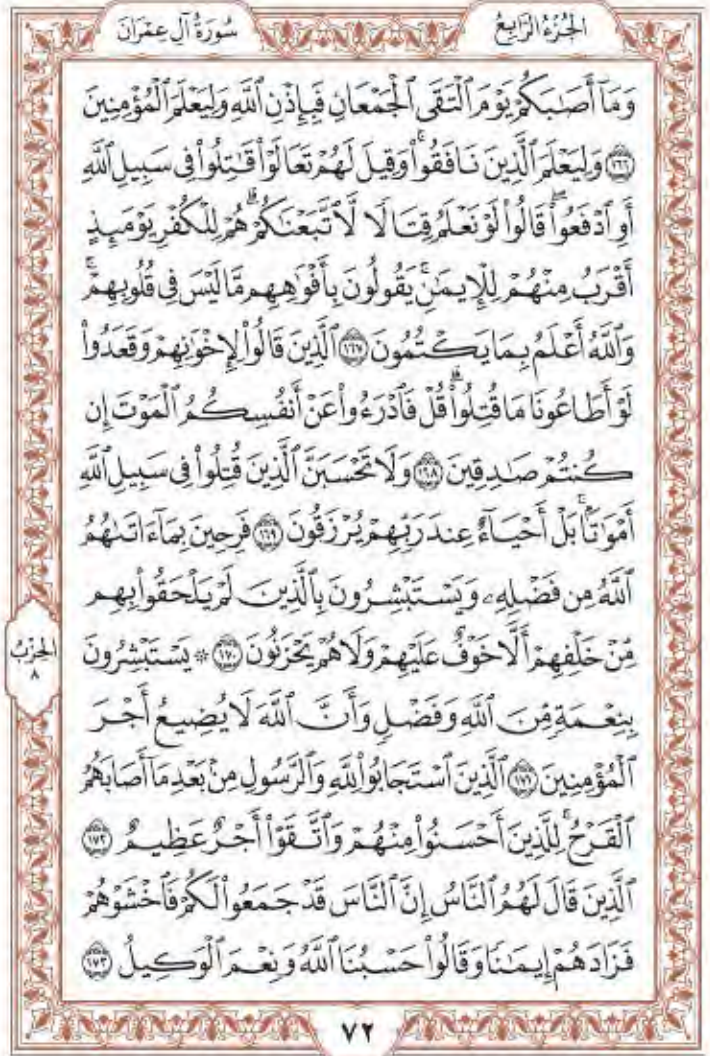 الجُزْءُ الرَّابِعُ
سُورَةُ آلِ عِمْرَانَ
وَمَآ أَصَٰبَكُمْ يَوْمَ ٱلْتَقَى ٱلْجَمْعَانِ فَبِإِذْنِ ٱللَّهِ وَلِيَعْلَمَ ٱلْمُؤْمِنِينَ
١٦٦ وَلِيَعْلَمَ ٱلَّذِينَ نَافَقُوا۟ ۚ وَقِيلَ لَهُمْ تَعَالَوْا۟ قَٰتِلُوا۟ فِى سَبِيلِ ٱللَّهِ
أَوِ ٱدْفَعُوا۟ ۖ قَالُوا۟ لَوْ نَعْلَمُ قِتَالًا لَّٱتَّبَعْنَٰكُمْ ۗ هُمْ لِلْكُفْرِ يَوْمَئِذٍ
أَقْرَبُ مِنْهُمْ لِلْإِيمَٰنِ ۚ يَقُولُونَ بِأَفْوَٰهِهِم مَّا لَيْسَ فِى قُلُوبِهِمْ ۗ
وَٱللَّهُ أَعْلَمُ بِمَا يَكْتُمُونَ ١٦٧ ٱلَّذِينَ قَالُوا۟ لِإِخْوَٰنِهِمْ وَقَعَدُوا۟
لَوْ أَطَاعُونَا مَا قُتِلُوا۟ ۗ قُلْ فَٱدْرَءُوا۟ عَنْ أَنفُسِكُمُ ٱلْمَوْتَ إِن
كُنتُمْ صَٰدِقِينَ ١٦٨ وَلَا تَحْسَبَنَّ ٱلَّذِينَ قُتِلُوا۟ فِى سَبِيلِ ٱللَّهِ
أَمْوَٰتًۢا ۚ بَلْ أَحْيَآءٌ عِندَ رَبِّهِمْ يُرْزَقُونَ ١٦٩ فَرِحِينَ بِمَآ ءَاتَىٰهُمُ
ٱللَّهُ مِن فَضْلِهِۦ وَيَسْتَبْشِرُونَ بِٱلَّذِينَ لَمْ يَلْحَقُوا۟ بِهِم
مِّنْ خَلْفِهِمْ أَلَّا خَوْفٌ عَلَيْهِمْ وَلَا هُمْ يَحْزَنُونَ ١٧٠ ۞ يَسْتَبْشِرُونَ
الحِزْبُ
٨
بِنِعْمَةٍ مِّنَ ٱللَّهِ وَفَضْلٍ وَأَنَّ ٱللَّهَ لَا يُضِيعُ أَجْرَ
ٱلْمُؤْمِنِينَ ١٧١ ٱلَّذِينَ ٱسْتَجَابُوا۟ لِلَّهِ وَٱلرَّسُولِ مِنۢ بَعْدِ مَآ أَصَابَهُمُ
ٱلْقَرْحُ ۚ لِلَّذِينَ أَحْسَنُوا۟ مِنْهُمْ وَٱتَّقَوْا۟ أَجْرٌ عَظِيمٌ ١٧٢
ٱلَّذِينَ قَالَ لَهُمُ ٱلنَّاسُ إِنَّ ٱلنَّاسَ قَدْ جَمَعُوا۟ لَكُمْ فَٱخْشَوْهُمْ
فَزَادَهُمْ إِيمَٰنًا وَقَالُوا۟ حَسْبُنَا ٱللَّهُ وَنِعْمَ ٱلْوَكِيلُ ١٧٣
٧٢